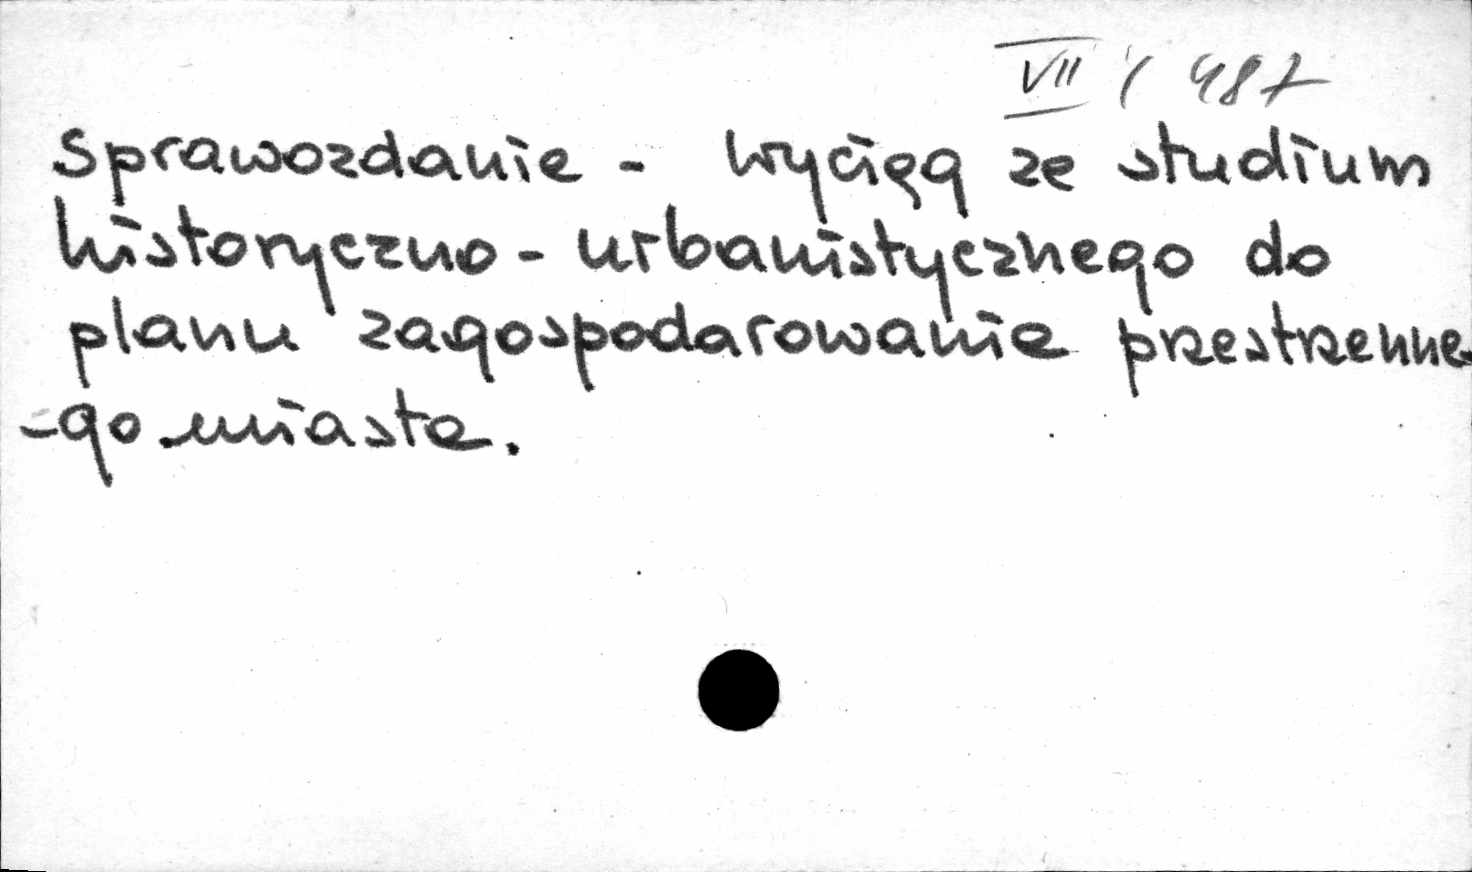 VII / 487
Sprawozdanie - wyciąg ze studium
historyczno - urbanistycznego do
planu zagospodarowania przestrzenne
-go miasta.